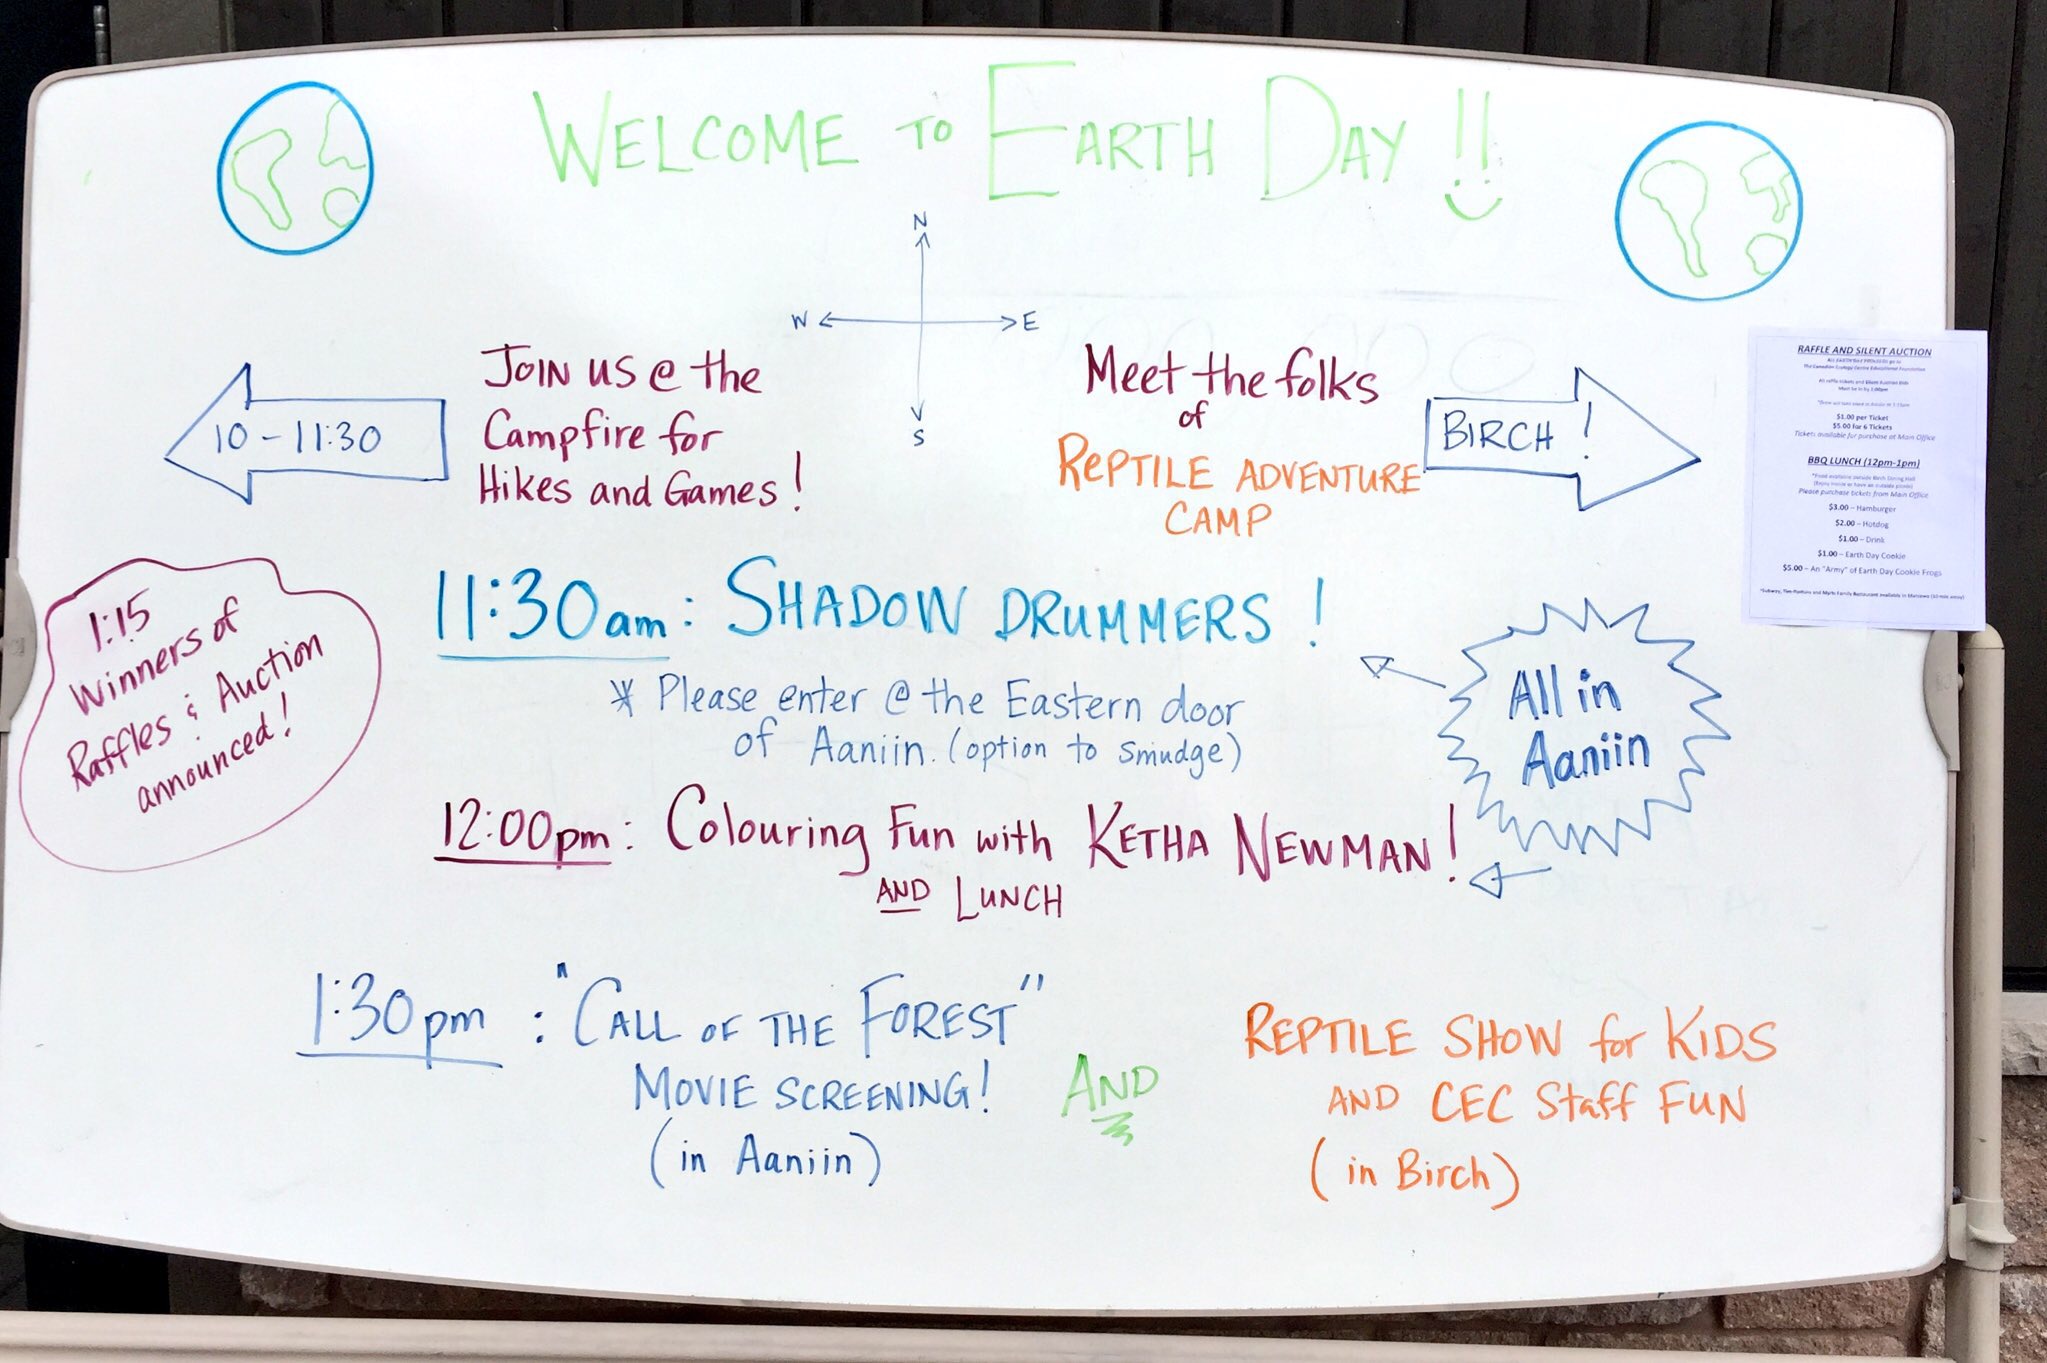 WELCOME TO EARTH DAY !!
N
W E
S
10 - 11:30
JOIN US @ the
Campfire for
Hikes and Games!
Meet the folks
of
REPTILE ADVENTURE
CAMP
BIRCH !
RAFFLE AND SILENT AUCTION
All EARTH DAY PROCEEDS go to
The Canadian Ecology Centre Educational Foundation
All raffle tickets and Silent Auction Bids
Must be in by 1:00pm
$1.00 per Ticket
$5.00 for 6 Tickets
Tickets available for purchase at Main Office
BBQ LUNCH (12pm-1pm)
*Food available outside Birch Dining Hall
(Enjoy inside or have an outside picnic)
Please purchase tickets from Main Office
$3.00 – Hamburger
$2.00 – Hotdog
$1.00 – Drink
$1.00 – Earth Day Cookie
$5.00 – An "Army" of Earth Day Cookie Frogs
1:15
Winners of
Raffles & Auction
announced!
11:30am : SHADOW DRUMMERS !
* Please enter @ the Eastern door
of Aaniin. (option to smudge)
All in
Aaniin
12:00pm : Colouring Fun with KETHA NEWMAN!
AND LUNCH
1:30pm : "CALL OF THE FOREST"
MOVIE SCREENING!
(in Aaniin)
AND
REPTILE SHOW for KIDS
AND CEC Staff FUN
(in Birch)